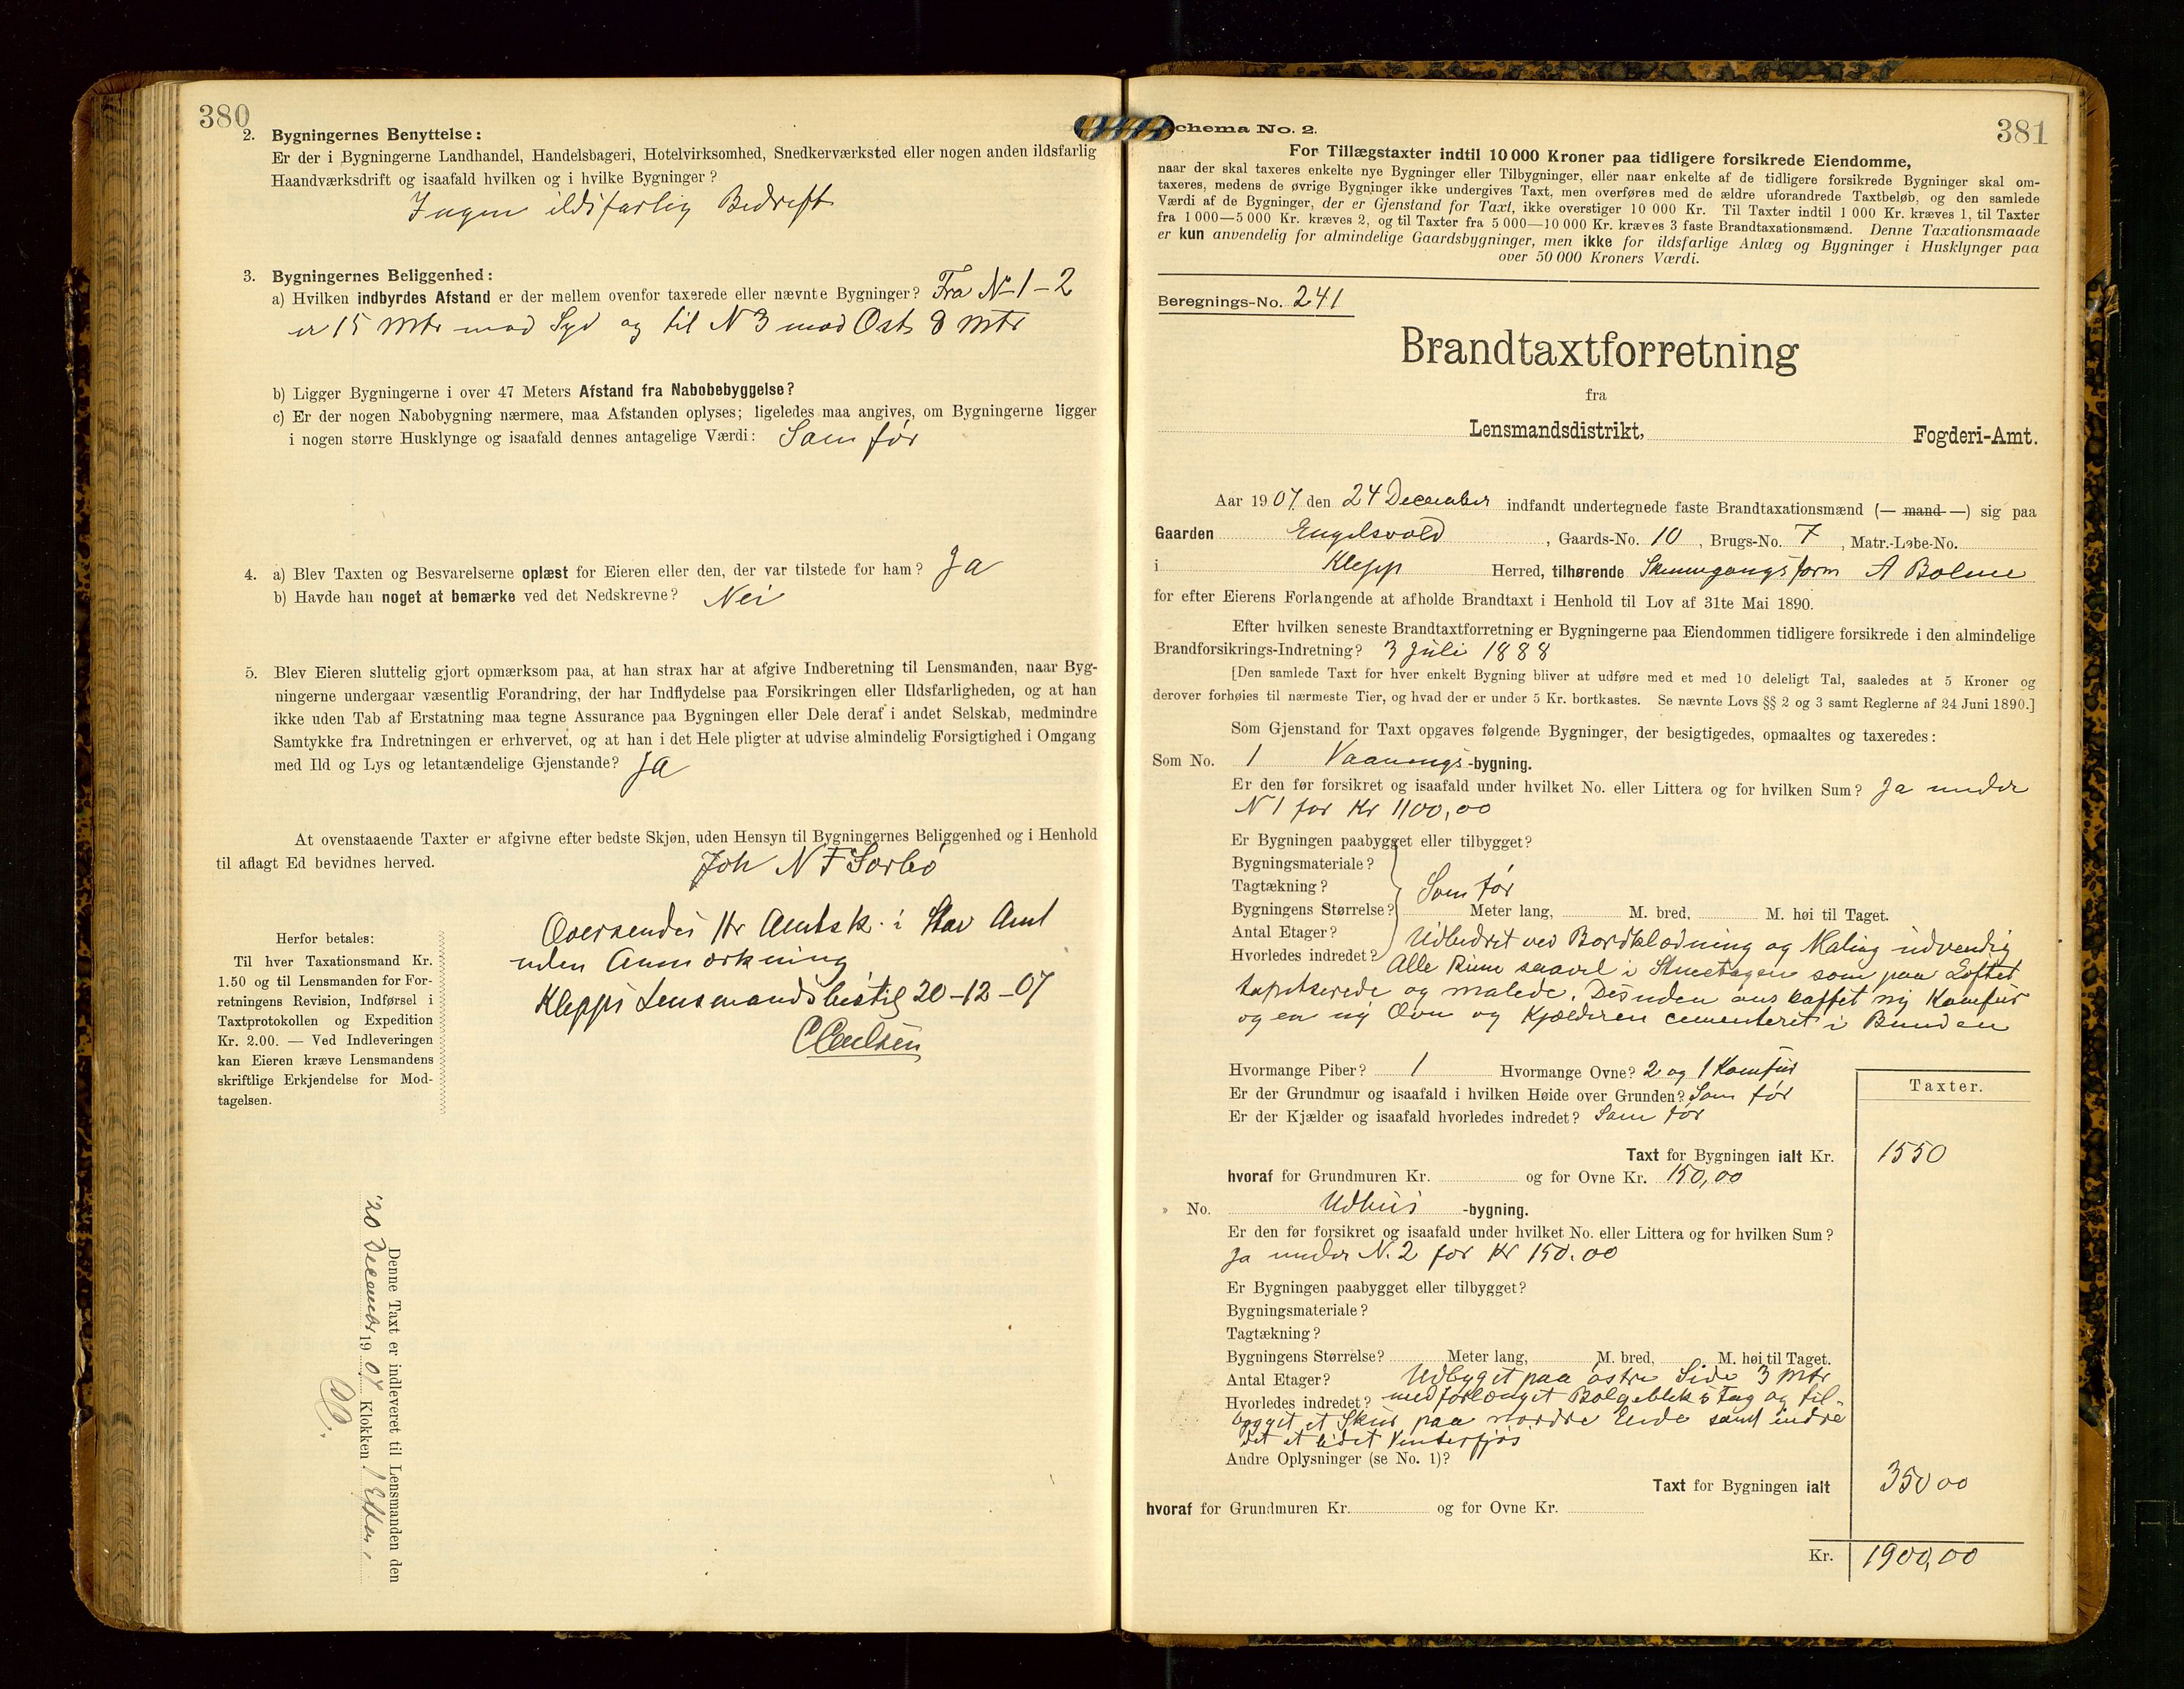 380
2. Bygningernes Benyttelse:
Er der i Bygningerne Landhandel, Handelsbageri, Hotelvirksomhed, Snedkerværksted eller nogen anden ildsfarlig
Haandværksdrift og isaafald hvilken og i hvilke Bygninger?
Ingen ildsfarlig Bedreft
3. Bygningernes Beliggenhed:
a) Hvilken indbyrdes Afstand er der mellem ovenfor taxerede eller nævnte Bygninger? Fra No 1 - 2
er 15 Mtr mod Syd og til N 3 mod Øst 8 Mtr
b) Ligger Bygningerne i over 47 Meters Afstand fra Nabobebyggelse?
c) Er der nogen Nabobygning nærmere, maa Afstanden oplyses; ligeledes maa angives, om Bygningerne ligger
i nogen større Husklynge og isaafald dennes antagelige Værdi: Som før
4. a) Blev Taxten og Besvarelserne oplæst for Eieren eller den, der var tilstede for ham? Ja
b) Havde han noget at bemærke ved det Nedskrevne? Nei
5. Blev Eieren sluttelig gjort opmærksom paa, at han strax har at afgive Indberetning til Lensmanden, naar Byg-
ningerne undergaar væsentlig Forandring, der har Indflydelse paa Forsikringen eller Ildsfarligheden, og at han
ikke uden Tab af Erstatning maa tegne Assurance paa Bygningen eller Dele deraf i andet Selskab, medmindre
Samtykke fra Indretningen er erhvervet, og at han i det Hele pligter at udvise almindelig Forsigtighed i Omgang
med Ild og Lys og letantændelige Gjenstande? Ja
At ovenstaaende Taxter er afgivne efter bedste Skjøn, uden Hensyn til Bygningernes Beliggenhed og i Henhold
til aflagt Ed bevidnes herved.
Joh N F Sorbø
Oversendes Hr Amtsk. i Stav Amt
uden Anmærkning
Klepps Lensmandsbestil 20-12-07
Herfor betales:
Til hver Taxationsmand Kr.
1.50 og til Lensmanden for For-
retningens Revision, Indførsel i
Taxtprotokollen og Expedition
Kr. 2.00. — Ved Indleveringen
kan Eieren kræve Lensmandens
skriftlige Erkjendelse for Mod-
tagelsen.
Denne Taxt er indleveret til Lensmanden den
20 December 1907 Klokken 1 Efterm.
Schema No. 2.
381
For Tillægstaxter indtil 10 000 Kroner paa tidligere forsikrede Eiendomme,
naar der skal taxeres enkelte nye Bygninger eller Tilbygninger, eller naar enkelte af de tidligere forsikrede Bygninger skal om-
taxeres, medens de øvrige Bygninger ikke undergives Taxt, men overføres med de ældre uforandrede Taxtbeløb, og den samlede
Værdi af de Bygninger, der er Gjenstand for Taxt, ikke overstiger 10 000 Kr. Til Taxter indtil 1 000 Kr. kræves 1, til Taxter
fra 1 000—5 000 Kr. kræves 2, og til Taxter fra 5 000—10 000 Kr. kræves 3 faste Brandtaxationsmænd. Denne Taxationsmaade
er kun anvendelig for almindelige Gaardsbygninger, men ikke for ildsfarlige Anlæg og Bygninger i Husklynger paa
over 50 000 Kroners Værdi.
Beregnings-No. 241
Brandtaxtforretning
fra
Lensmandsdistrikt, Fogderi-Amt.
Aar 1907 den 24 December indfandt undertegnede faste Brandtaxationsmænd (— mand —) sig paa
Gaarden Engelsvold, Gaards-No. 10, Brugs-No. 7, Matr.-Løbe-No.
i Klepp Herred, tilhørende A Bolme
for efter Eierens Forlangende at afholde Brandtaxt i Henhold til Lov af 31te Mai 1890.
Efter hvilken seneste Brandtaxtforretning er Bygningerne paa Eiendommen tidligere forsikrede i den almindelige
Brandforsikrings-Indretning? 3 Juli 1888
[Den samlede Taxt for hver enkelt Bygning bliver at udføre med et med 10 deleligt Tal, saaledes at 5 Kroner og
derover forhøies til nærmeste Tier, og hvad der er under 5 Kr. bortkastes. Se nævnte Lovs §§ 2 og 3 samt Reglerne af 24 Juni 1890.]
Som Gjenstand for Taxt opgaves følgende Bygninger, der besigtigedes, opmaaltes og taxeredes:
Som No. 1 Vaanings-bygning.
Er den før forsikret og isaafald under hvilket No. eller Littera og for hvilken Sum? Ja under
N 1 for Kr 1100,00
Er Bygningen paabygget eller tilbygget?
Bygningsmateriale?
Tagtækning? Som før
Bygningens Størrelse? Meter lang, M. bred, M. høi til Taget.
Antal Etager? Udbedret ved Bordklædning og Maling udvendig
Hvorledes indredet? Alle Rum saavel i Stuetagen som paa Loftet
tapetserede og malede. Desuden anskaffet ny Komfur
og en ny Ovn og Kjælderen cementeret i Bunden
Hvormange Piber? 1 Hvormange Ovne? 2 og 1 Komfur
Er der Grundmur og isaafald i hvilken Høide over Grunden? Som før
Er der Kjælder og isaafald hvorledes indredet? Som før
Taxter.
Taxt for Bygningen ialt Kr. 1550
hvoraf for Grundmuren Kr. og for Ovne Kr. 150,00
» No. Udhus -bygning.
Er den før forsikret og isaafald under hvilket No. eller Littera og for hvilken Sum?
Ja under N. 2 for Kr 150.00
Er Bygningen paabygget eller tilbygget?
Bygningsmateriale?
Tagtækning?
Bygningens Størrelse? Meter lang, M. bred, M. høi til Taget.
Antal Etager? Udbyget paa østre Side 3 Mtr
Hvorledes indredet? med forlænget Bølgebliks Tag og til-
bygget et Skur paa nordre Ende samt indre
det et lidet Vinterfjøs
Andre Oplysninger (se No. 1)?
Taxt for Bygningen ialt 350 00
hvoraf for Grundmuren Kr. og for Ovne Kr.
Kr. 1900,00